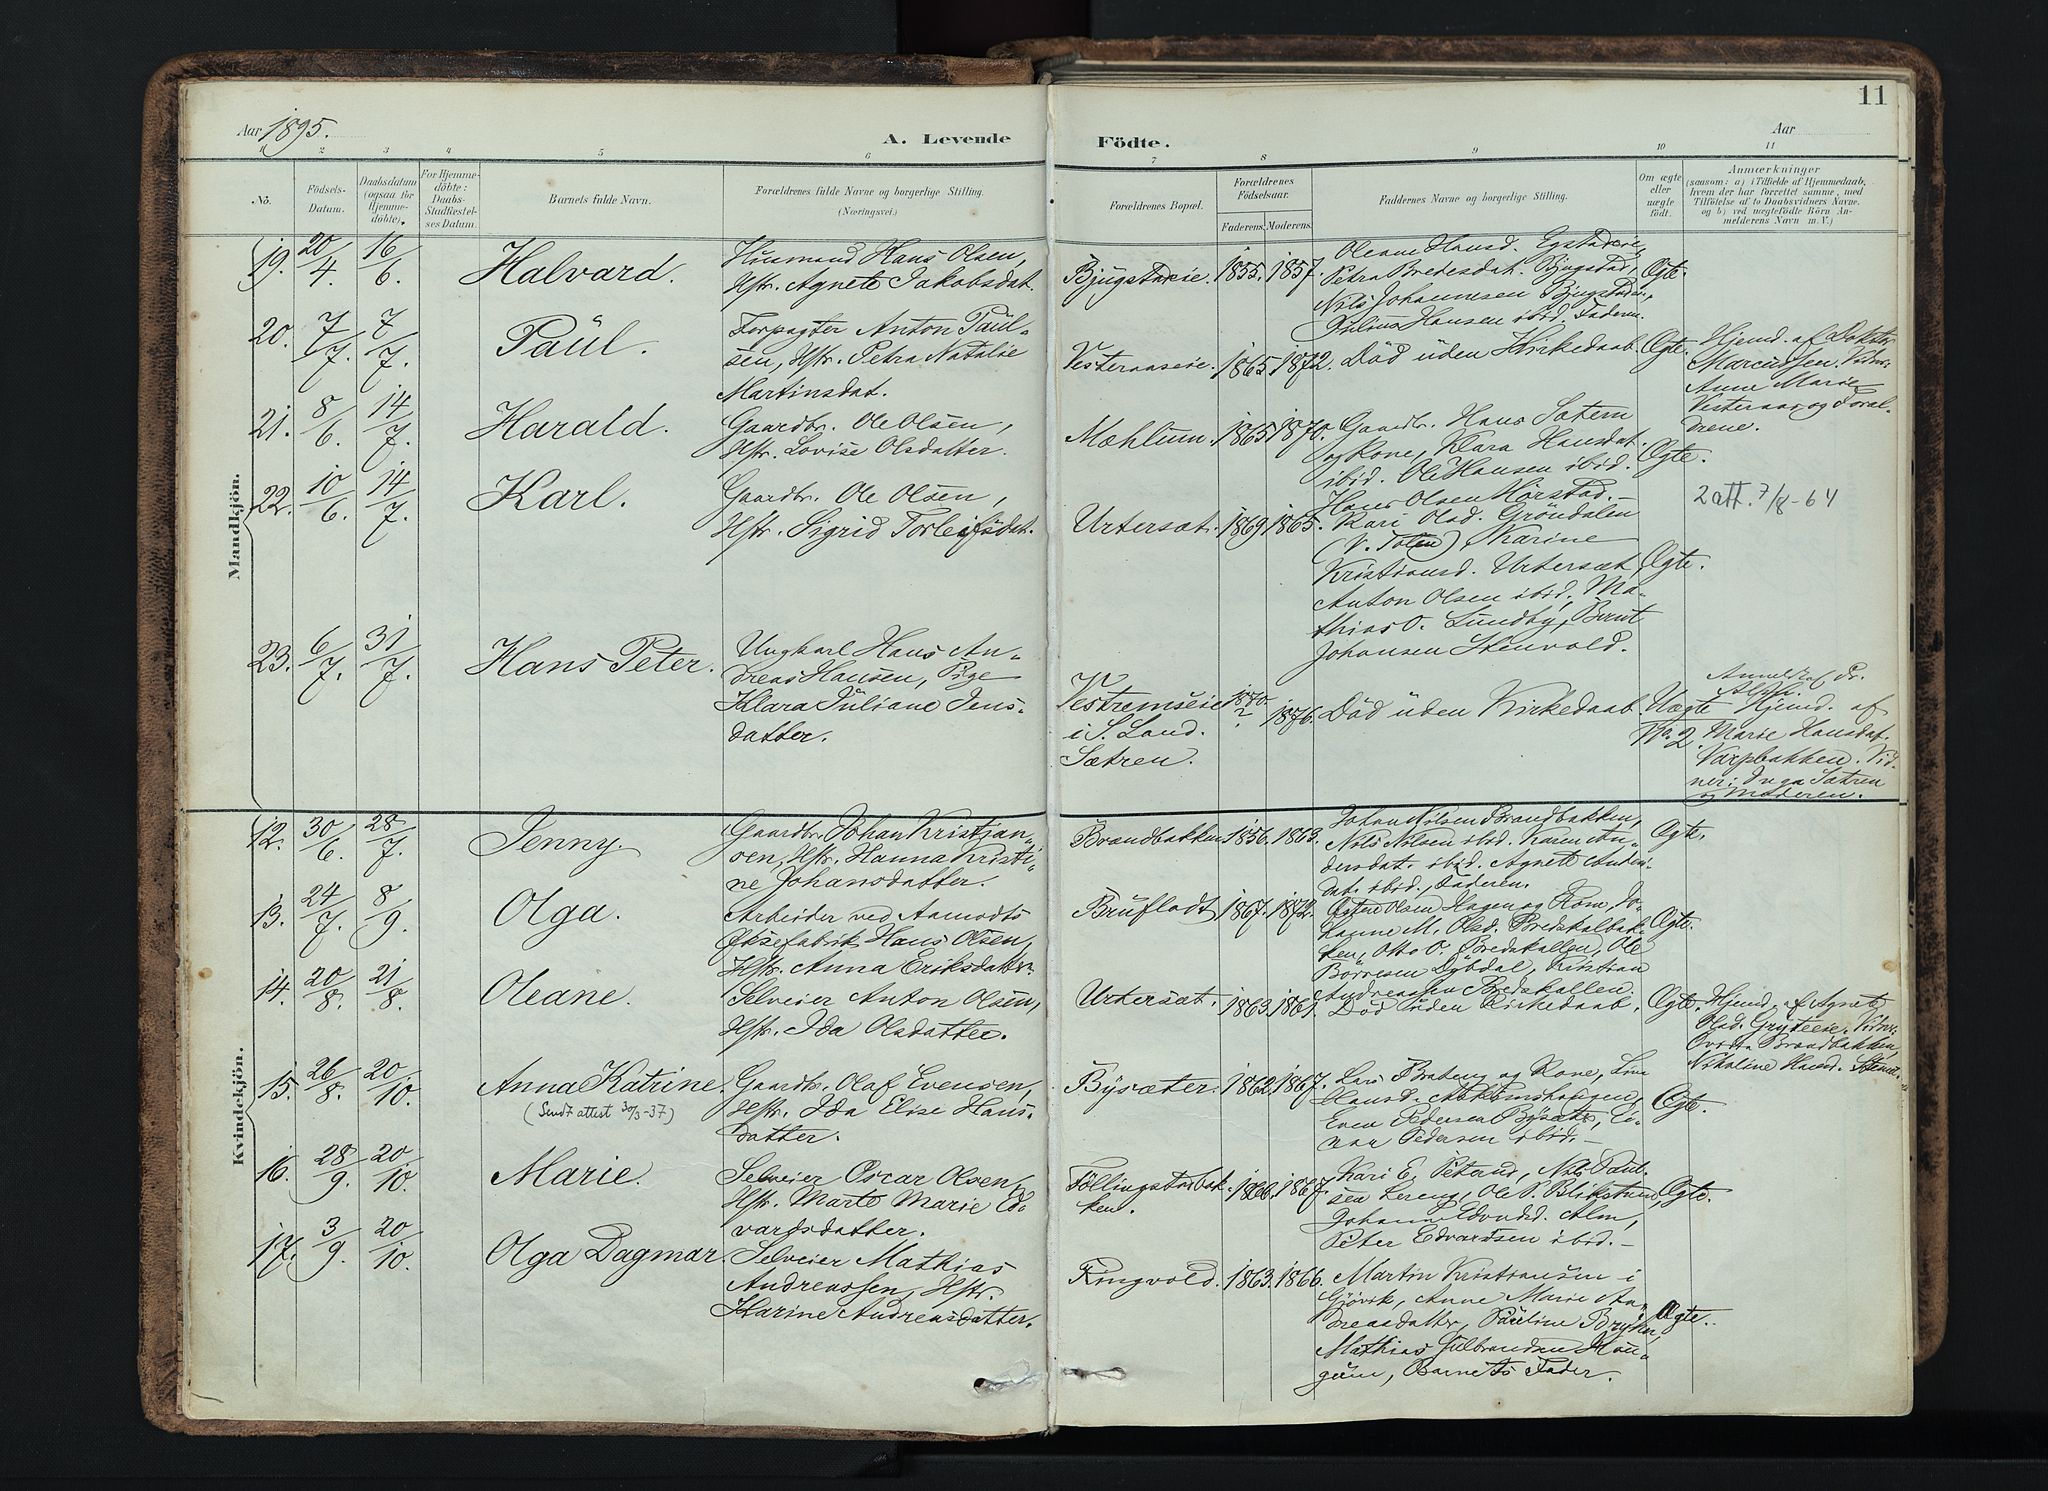 11
Aar 1895.
A. Levende
Födte.
Aar
1 2 3 4 5 6 7 8 9 10 11
No.
Födsels-
Datum.
Daabsdatum
(ogsaa for
Hjemme-
döbte).
For Hjemme-
döbte:
Daabs-
Stadfæstel-
ses Datum.
Barnets fulde Navn.
Forældrenes fulde Navne og borgerlige Stilling.
(Næringsvei.)
Forældrenes Bopæl.
Forældrenes
Födselsaar.
Faderens. Moderens.
Faddernes Navne og borgerlige Stilling.
Om ægte
eller
uægte
födt.
Anmærkninger
(saasom: a) i Tilfælde af Hjemmedaab,
hvem der har forrettet samme, med
Tilföielse af to Daabsvidners Navne.
og b) ved uægtefödte Börn An-
melderens Navn m. V.)
Mandkjön.
19. 20/4. 16/6. Halvard.
Husmand Hans Olsen,
Hstr. Agnete Jakobsdat.
Bjugstadeie. 1855. 1857.
Oleane Hansd. Egstadeie,
Petra Bredesdat. Bjugstad,
Nils Johannesen Bjugstadeie,
Julius Hansen ibid. Faderen.
Ægte.
20. 7/7. 7/7. Paul.
Forpagter Anton Paul-
sen, Hstr. Petra Natalie
Martinsdat.
Vesteraaseie. 1865. 1872. Död uden Kirkedaab. Ægte.
Hjemd. af Doktor
Marcussen. Vidner:
Anne Marie
Vesteraas og Doral-
drene.
21. 8/6. 14/7. Harald.
Gaardbr. Ole Olsen,
Hstr. Lovise Olsdatter.
Mæhlum. 1865. 1870.
Gaardbr. Hans Sætern
og Kone, Klara Hansdat.
ibid. Ole Hansen ibid.
Hans Olsen Hörstad.-
Ægte.
22. 10/6. 14/7. Karl.
Gaardbr. Ole Olsen,
Hstr. Sigrid Torleifsdat.
Urtersæt. 1869. 1865.
Kari Olsd. Gröndalen
(V. Toten), Karine
Kristiansd. Urtersæt,
Anton Olsen ibid, Ma-
thias O. Lundby, Bernt
Johansen Stenvold.
Ægte.
2 att. 7/8-64
23. 6/7. 31/7. Hans Peter.
Ungkarl Hans An-
dreas Hansen, Pige
Klara Juliane Jens-
datter.
Vestremseie
i S. Land.
Sætren.
1870.
?
1876. Död uden Kirkedaab. Uægte
No. 2.
Anmeldt af Dr.
Hjemd. af
Marie Hansdat.
Varpbakken. Vid-
ner: Inga Sætren
og Moderen.
Kvindekjön.
12. 30/6. 28/7. Jenny.
Gaardbr. Johan Kristjan-
sen, Hstr. Hanna Kristi-
ne Johansdatter.
Brandbakken. 1856. 1863.
Johan Nilsen Brandbakken,
Nils Nilsen ibid. Karen An-
dersdat. ibid. Agnete Anders-
dat. ibid., Faderen.
Ægte.
13. 24/7. 8/9. Olga.
Arbeider ved Aamodts
Øksefabrik Hans Olsen,
Hstr. Anna Eriksdatter.
Brufladt, 1867. 1872.
Olsen Hagen og Kone, Jo-
hanne M. Olsd. Bredskalbak-
ken, Otto O. Bredskallen, Ole
Börresen Dybdal, Kristian
Andreassen Bredskallen.
Ægte.
14. 20/8. 21/8. Oleane.
Selveier Anton Olsen,
Hstr. Ida Olsdatter.
Urtersæt. 1863. 1861. Död uden Kirkedaab. Ægte.
Hjemd. af Agnete
Olsd. Gryteeie. Vidner:
Brandbakken,
Nikoline Hansd.
15. 26/8. 20/10. Anna Katrine.
(Sendt attest 30/3-37)
Gaardbr. Olaf Evensen,
Hstr. Ida Elise Hans-
datter.
Bysæter. 1862. 1867.
Lars Brateng og Kone, Lina
Hansd.
Even Pedersen Bysæter, Ei-
nar Pedersen ibid.-
Ægte.
16. 28/9. 20/10. Marie.
Selveier Oscar Olsen,
Hstr. Marte Marie Ed-
vardsdatter.
Föllingstadbak-
ken.
1868. 1867.
Kari E. Nils Paul-
sen Lereng, Ole P. Blikstrum,
Johanne Edvardsd. Alm,
Peter Edvardsen ibid.-
Ægte.
17. 3/9. 20/10. Olga Dagmar.
Selveier Mathias
Andreassen, Hstr.
Karine Andreasdatter.
Ringvold. 1863. 1866.
Martin Kristiansen i
Gjövik, Anne Marie An-
dreasdatter, Pauline
Mathias Gulbrandsen Hau-
gum, Barnets Fader.
Ægte.